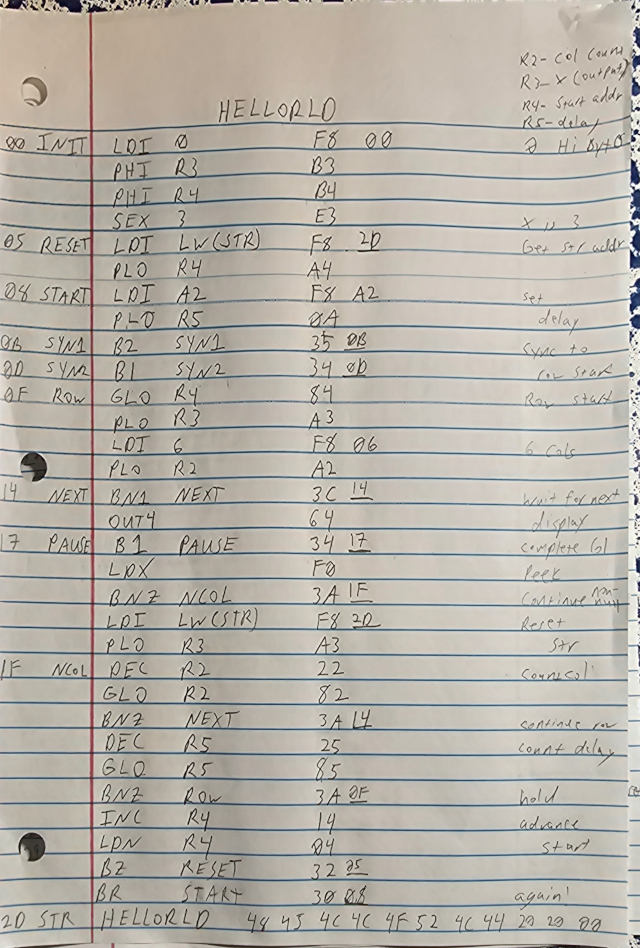 R2- Col Count
R3- X (output)
R4- Start addr
HELLORLD
R5- delay
00 INIT LDI 0 F8 00 0 Hi Byte
PHI R3 B3
PHI R4 B4
SEX 3 E3 X is 3
05 RESET LDI LW(STR) F8 2D Get str addr
PLO R4 A4
08 START LDI A2 F8 A2 set
PLO R5 0A delay
0B SYN1 B2 SYN1 35 0B Sync to
0D SYN2 B1 SYN2 34 0D row start
0F ROW GLO R4 84 Row start
PLO R3 A3
LDI 6 F8 06 6 cols
PLO R2 A2
14 NEXT BN1 NEXT 3C 14 Wait for next
OUT4 64 display
17 PAUSE B1 PAUSE 34 17 complete Col
LDX F0 Peek
BNZ NCOL 3A 1F Continue non-null
LDI LW(STR) F8 2D Reset
PLO R3 A3 Str
1F NCOL DEC R2 22 count col
GLO R2 82
BNZ NEXT 3A 14 continue row
DEC R5 25 count delay
GLO R5 85
BNZ ROW 3A 0F hold
INC R4 14 advance
LDN R4 04 start
BZ RESET 32 05
BR START 30 08 again!
2D STR HELLORLD 48 45 4C 4C 4F 52 4C 44 20 20 00